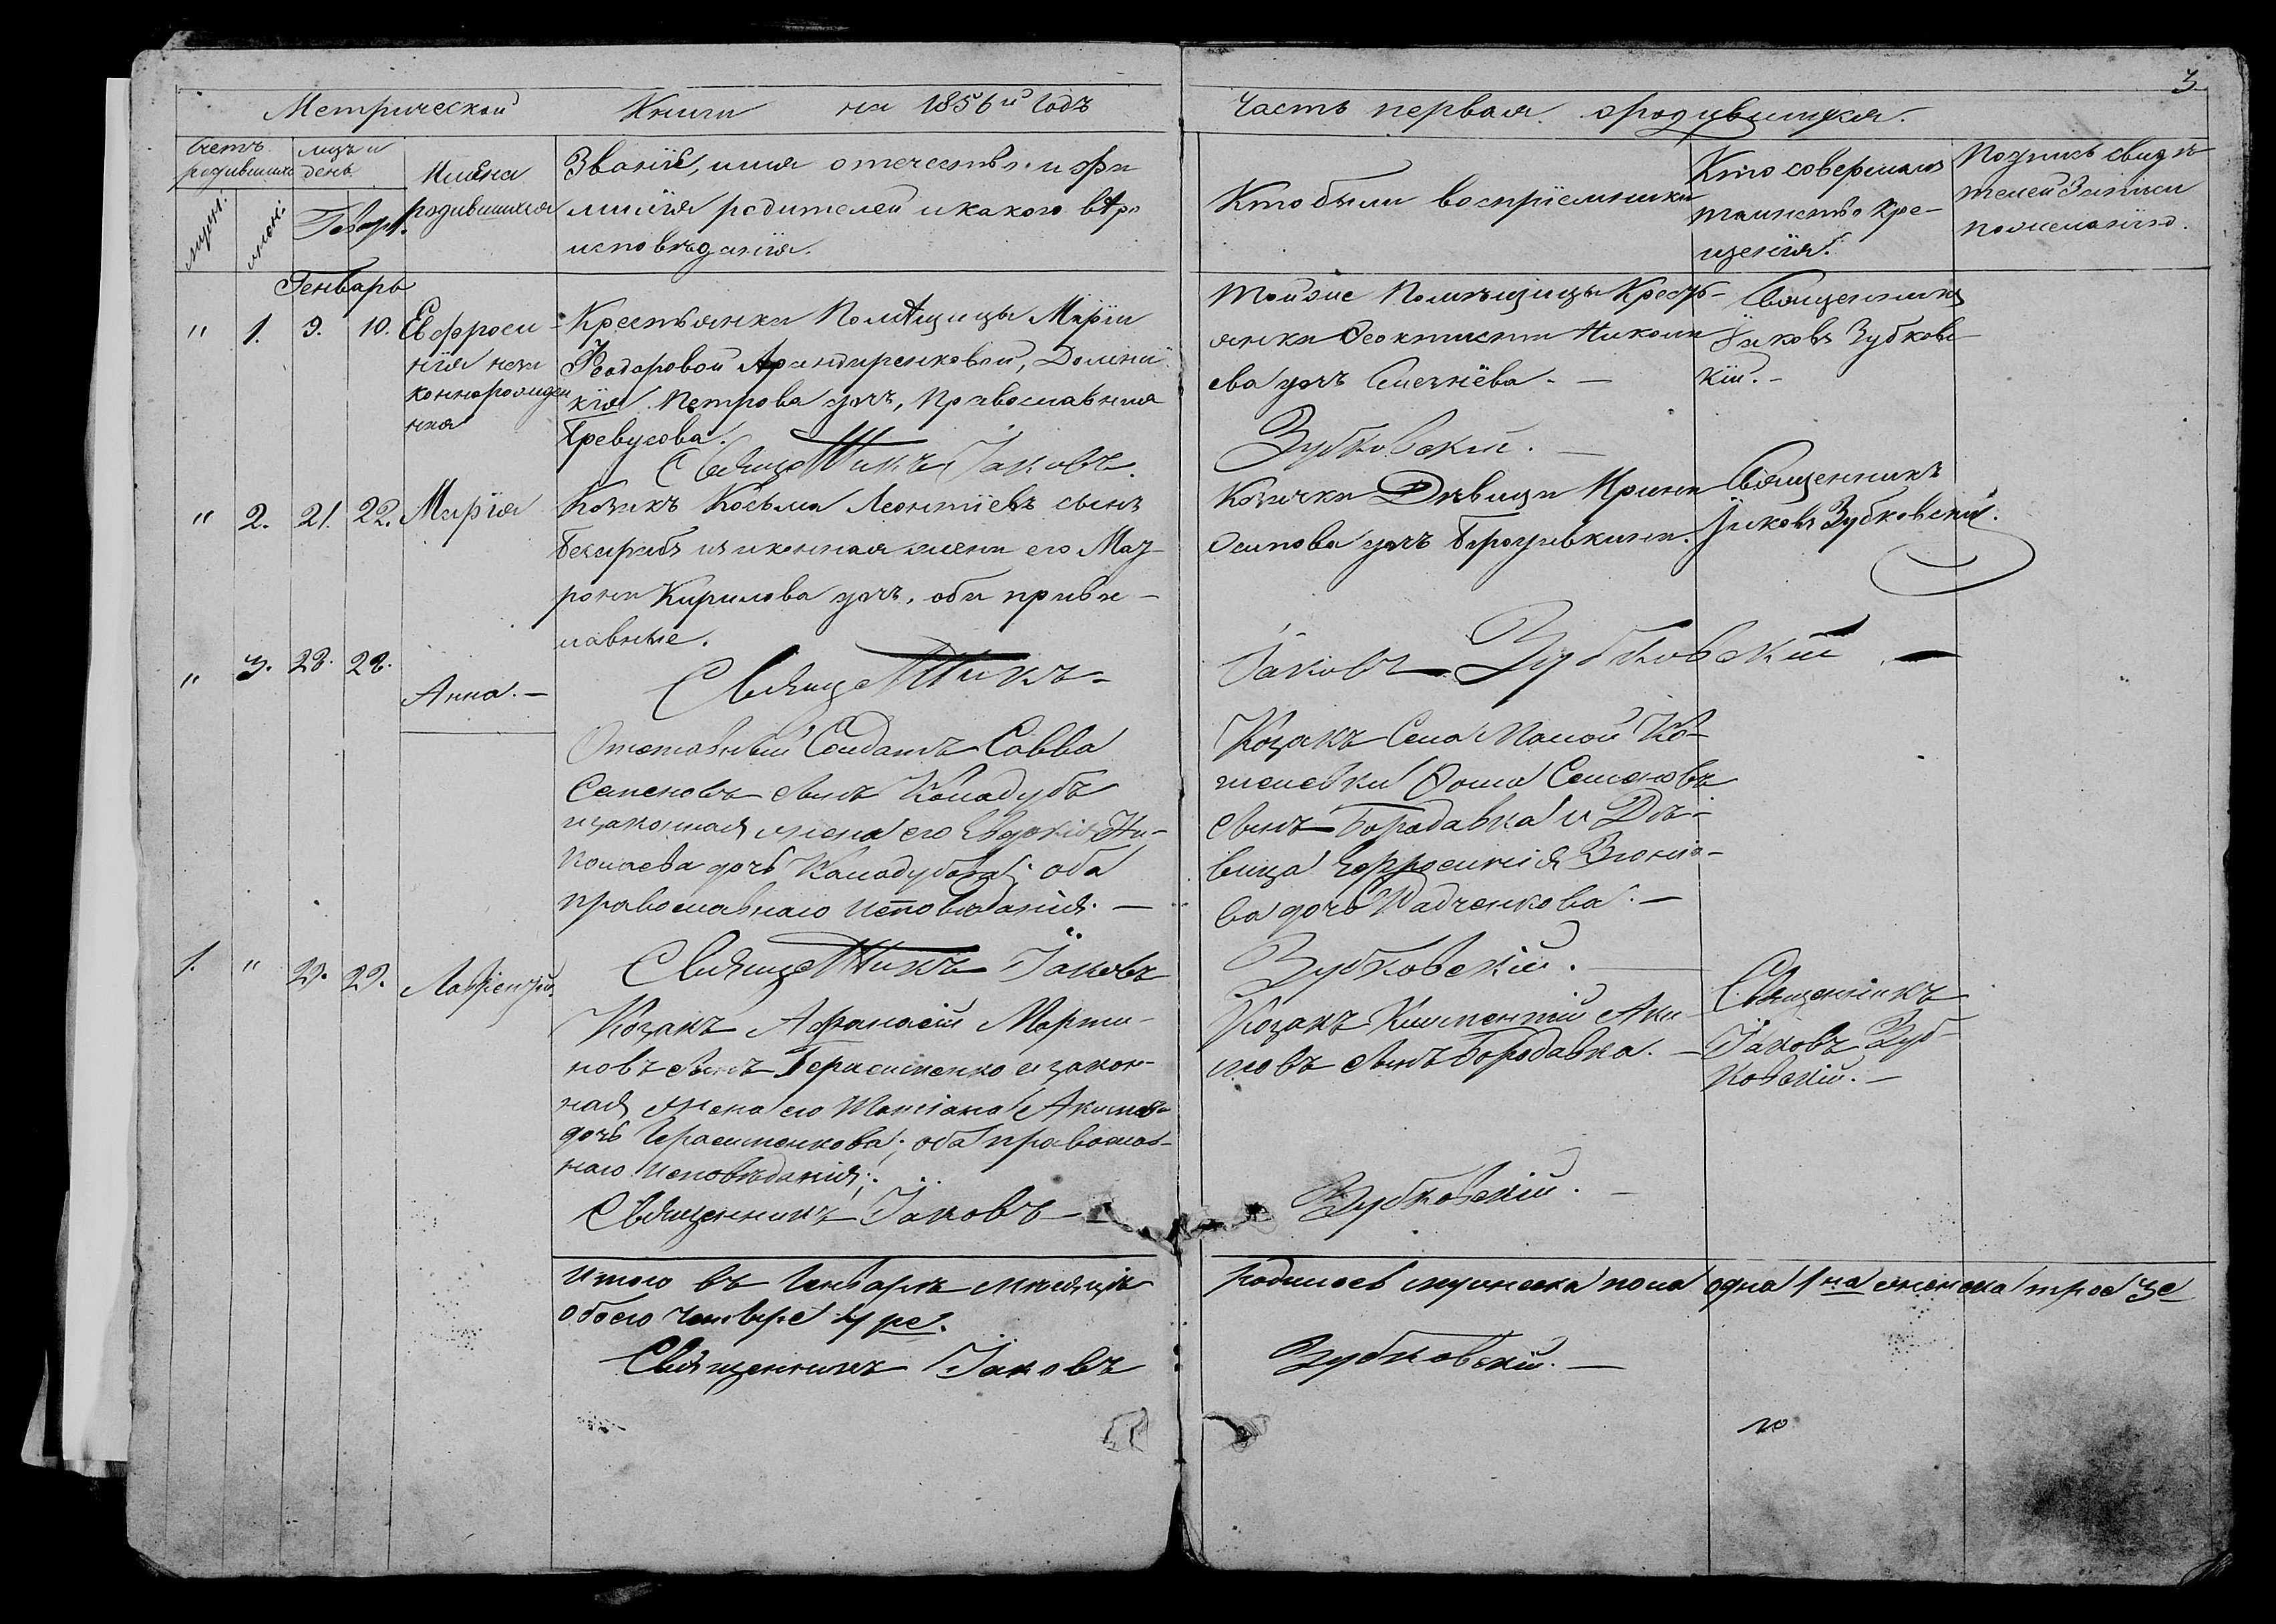 3
Метрической Книги на 1856й Годъ
Часть первая о родившихся.
Счетъ родившихся
мѣсяцъ и день
Имена родившихся
Званіе, имя отечество и фа
милія родителей и какого вѣро
исповѣданія.
Кто были воспріемники
Кто совершалъ
таинство Кре-
щенія.
Подпись свидѣ
телей записи
по желанію.
мужс.
женс.
Генварь
" 1. 9. 10.
Евфроси-
нія неза
коннорожден
ная
Крестьянки Помѣщицы Маріи
Феодоровой Домни
кія Петрова дочь, Православная
Священникъ Іаковъ
Тойже Помѣщицы Кресть-
янка Феоктиста Никола
ева дочь
Зубковскій.
Священникъ
Іаковъ Зубковс
кій.
" 2. 21. 22.
Марія
Козакъ Косьма Леонтіевъ сынъ
и законная жена его Мат-
рона Кирилова дочь, оба правос-
лавные.
Священникъ
Козачка Дѣвица Ирина
Осипова дочь
Іаковъ Зубковскій.
Священникъ
Іаковъ Зубковскій.
" 3. 28. 28.
Анна.
Отставный Солдатъ Савва
Семеновъ сынъ Калодубъ
и законная жена его Евдокія Ни-
колаева дочь Калодубова; оба
православнаго исповѣданія.
Священникъ Іаковъ
Козакъ Села Малой Ко-
шелевки Фома Семеновъ
сынъ Бородавка и Дѣ-
вица Ефросинія
ва дочь Радченкова.
Зубковскій.
1. " 29. 29.
Лаврентій.
Козакъ Афанасій Марти-
новъ сынъ Герасименко и закон-
ная жена его Татіана Акимова
дочь Герасименкова; оба православ-
наго исповѣданія;
Священникъ Іаковъ
Козакъ Климентій Аки-
мовъ сынъ Бородавка.
Зубковскій.
Священникъ
Іаковъ Зуб-
ковскій.
Итого въ Генварѣ мѣсяцѣ родилось мужеска пола одна 1на женска трое 3е
обоего четыре 4ре.
Священникъ Іаковъ Зубковскій.